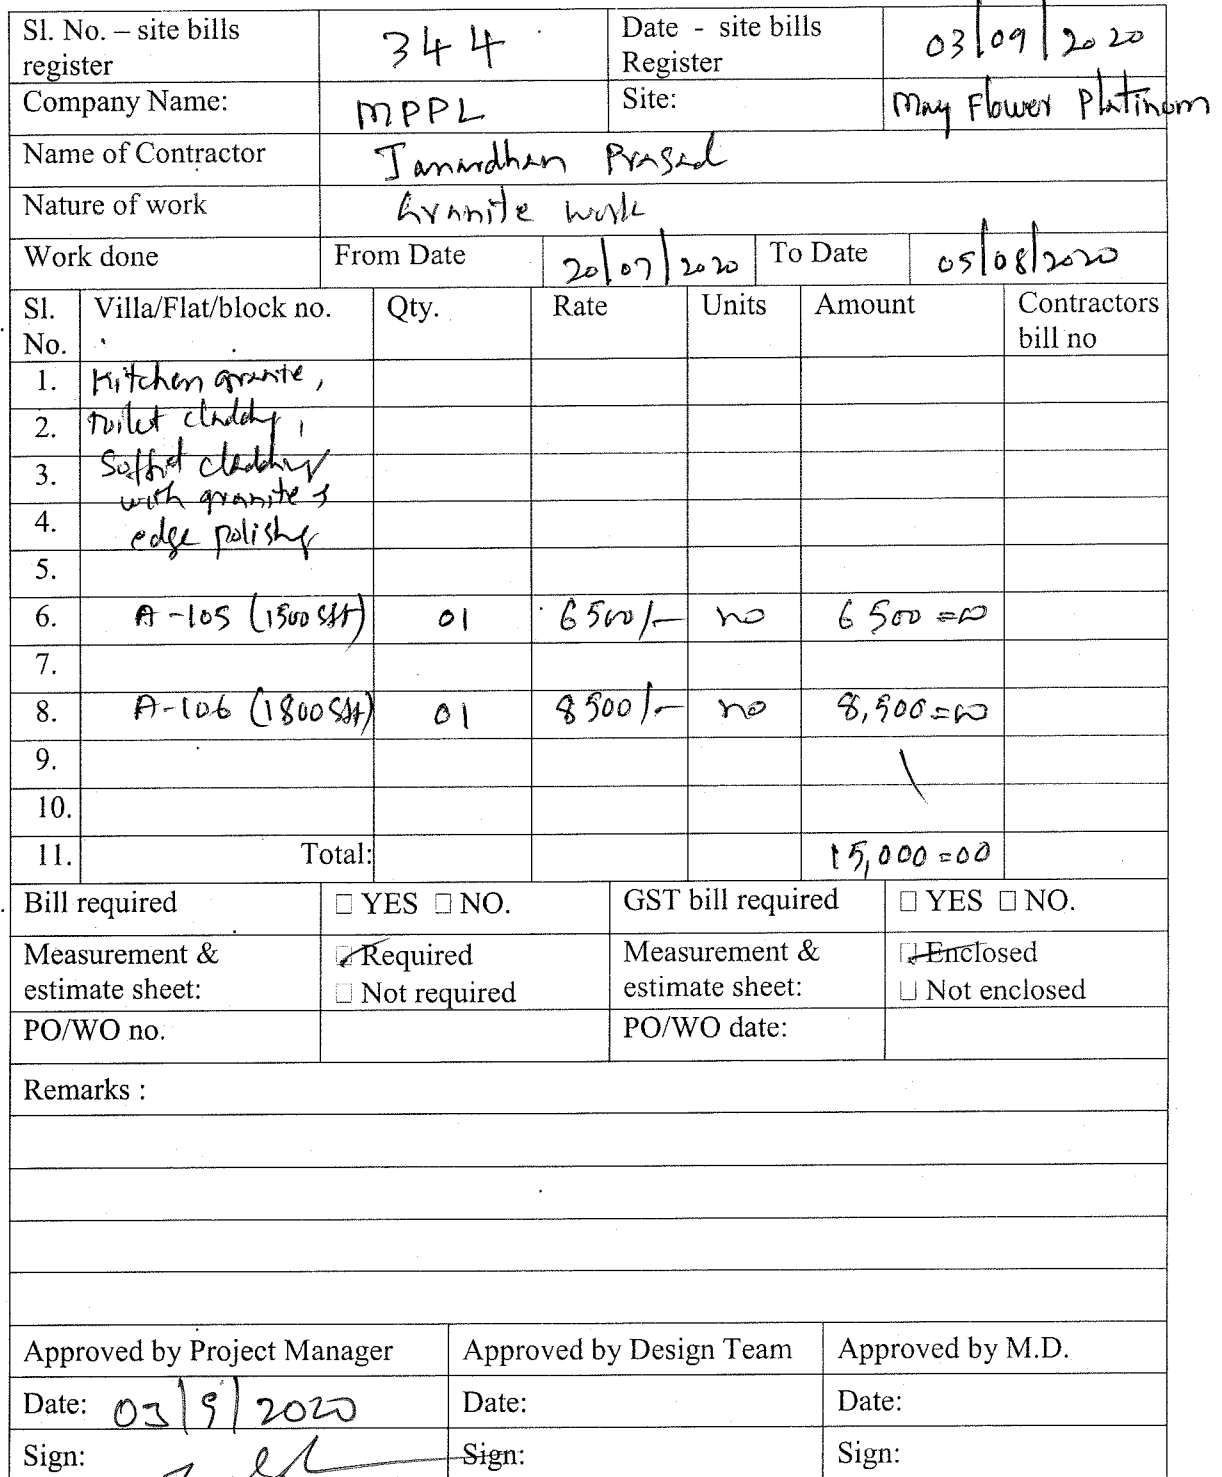 Sl. No. – site bills register 344 Date - site bills Register 03/09/2020
Company Name: MPPL Site: May Flower Platinum
Name of Contractor Janardhan Prasad
Nature of work Granite work
Work done From Date 20/07/2020 To Date 05/08/2020
Sl. No. Villa/Flat/block no. Qty. Rate Units Amount Contractors bill no
1. Kitchen granite,
2. toilet cladding,
3. Soffit cladding
with granite &
4. edge polishing
5.
6. A-105 (1500 Sft) 01 6500/- no 6500=00
7.
8. A-106 (1800 Sft) 01 8500/- no 8,500=00
9.
10.
11. Total: 15,000=00
Bill required □ YES □ NO. GST bill required □ YES □ NO.
Measurement & estimate sheet: ☑ Required □ Not required Measurement & estimate sheet: ☑ Enclosed □ Not enclosed
PO/WO no. PO/WO date:
Remarks :
Approved by Project Manager Approved by Design Team Approved by M.D.
Date: 03/9/2020 Date: Date:
Sign: Sign: Sign: